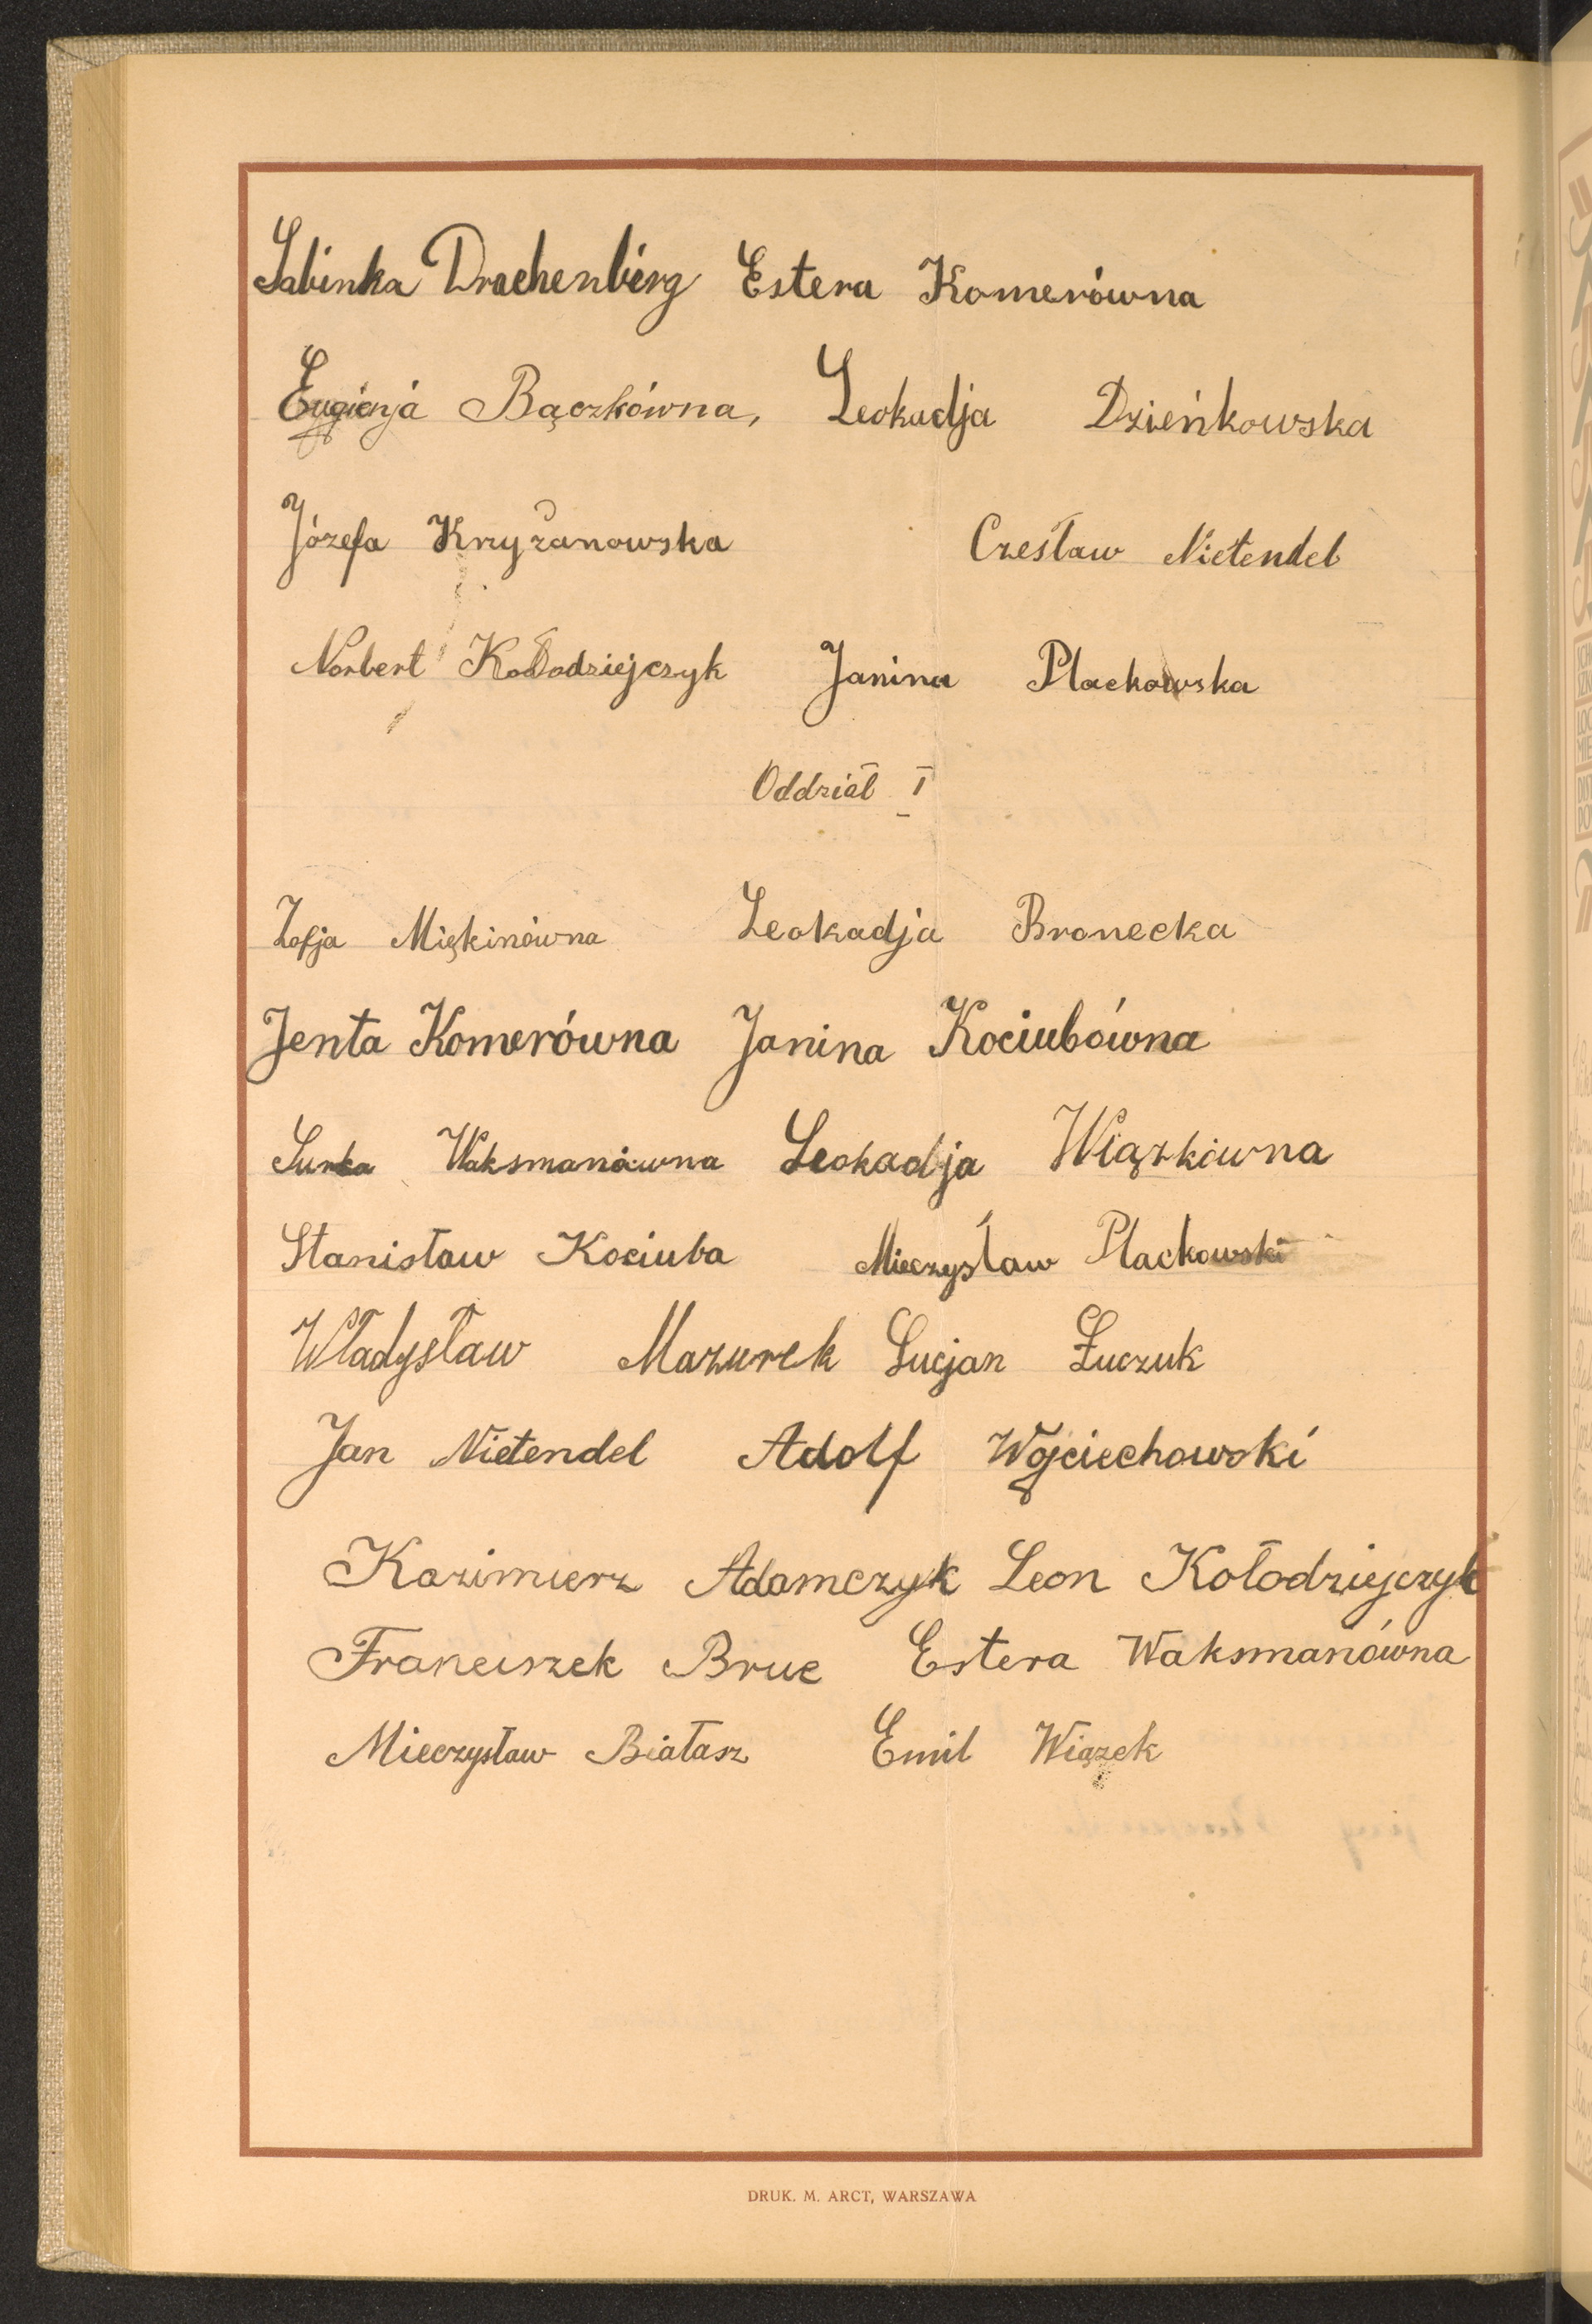 Sabinka Drachenberg Estera Komerówna
Eugienja Bączkówna, Leokadja Dzieńkowska
Józefa Krzyżanowska Czesław Nietendel
Norbert Kołodziejczyk Janina Plachowska
Oddział I
Zofja Miękinówna Leokadja Bronecka
Jenta Komerówna Janina Kociubówna
Surka Waksmanówna Leokadja Wiązkówna
Stanisław Kociuba Mieczysław Plackowski
Władysław Mazurek Lucjan Łuczuk
Jan Nietendel Adolf Wojciechowski
Kazimierz Adamczyk Leon Kołodziejczyk
Franciszek Bruc Estera Waksmanówna
Mieczysław Białasz Emil Wiązek
DRUK. M. ARCT, WARSZAWA